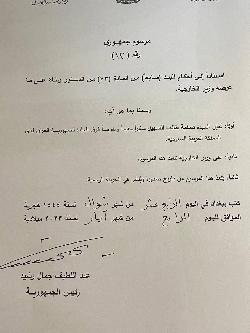 مرسوم جمهوري
رقم (١٢)
استناداً إلى أحكام البند (سابعاً) من المادة (٧٣) من الدستور وبناءً على ما
عرضه وزير الخارجية.
رسمنا بما هو آتٍ:
أولاً: تعيين السيدة صفية طالب السهيل سفيراً
المملكة العربية السعودية.
ثانياً: على وزير الخارجية تنفيذ هذا المرسوم.
ثالثاً: ينفذ هذا المرسوم من تاريخ صدوره وينشر في الجريدة الرسمية.
كتب ببغداد في اليوم الرابع عشر من شهر شوال لسنة ١٤٤٤ هجرية
الموافق لليوم الرابع من شهر أيار لسنة ٢٠٢٣ ميلادية
عبد اللطيف جمال رشيد
رئيس الجمهورية